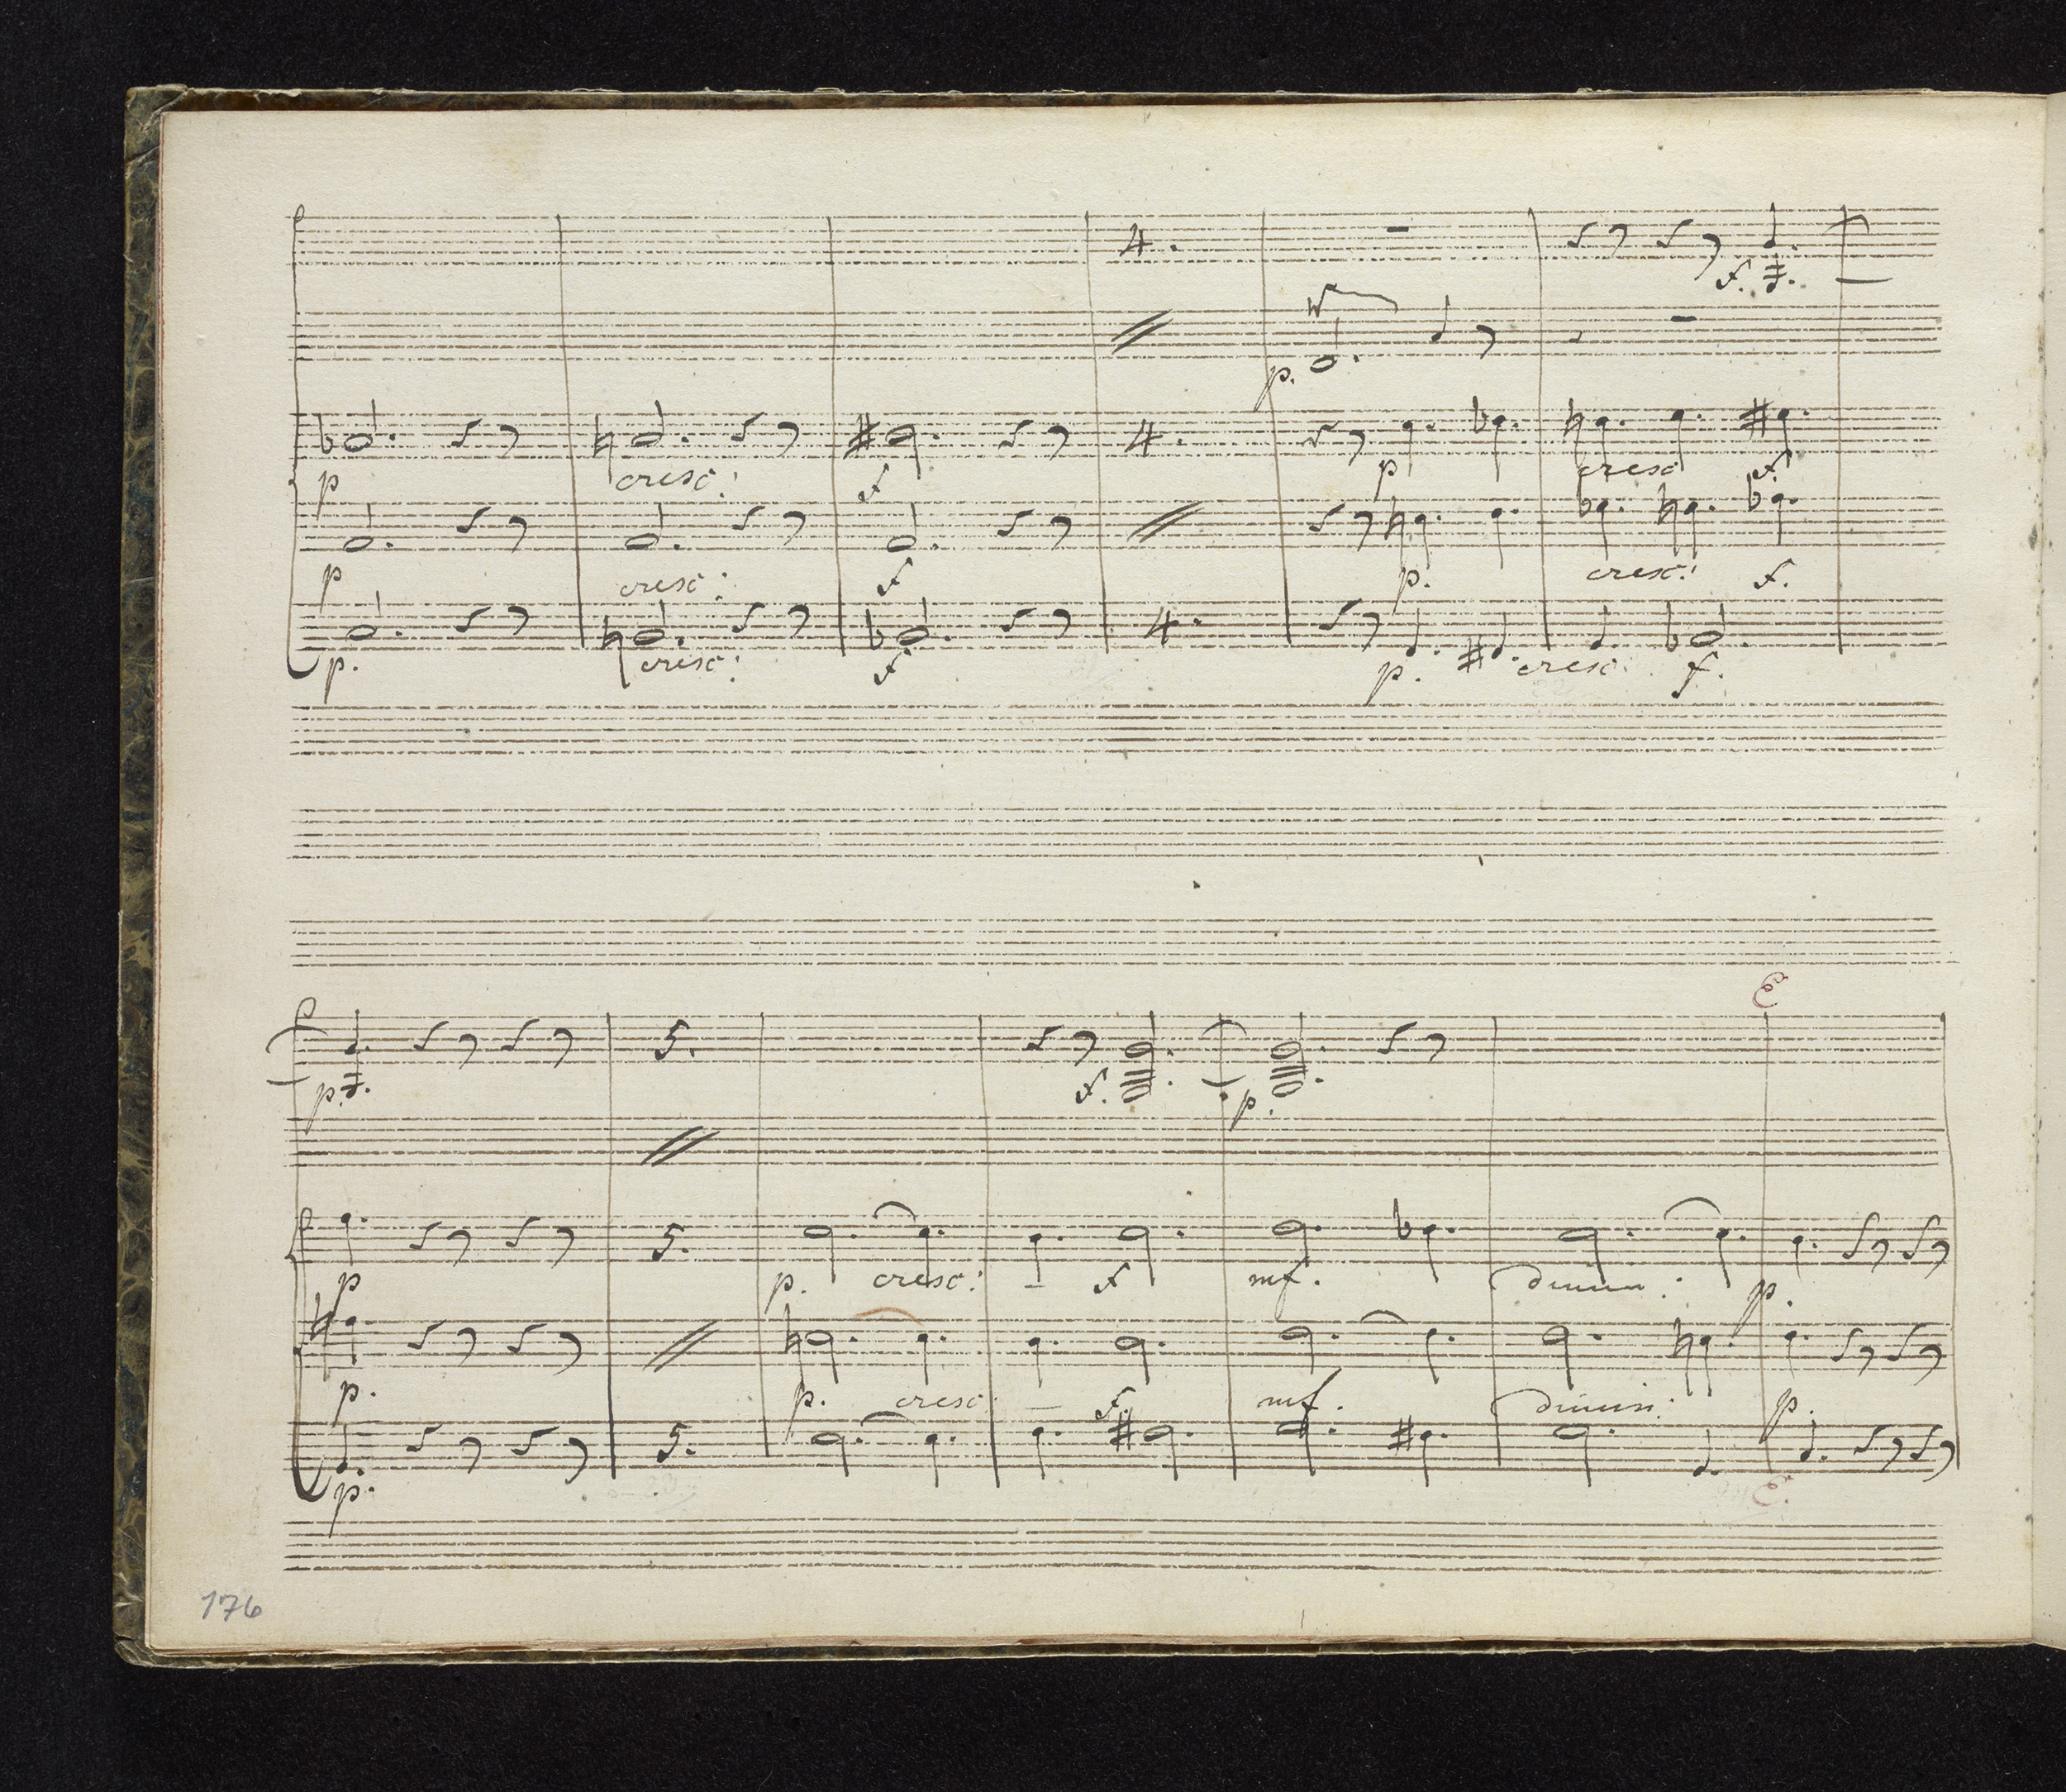 4.
f.
p.
4.
p cresc: f p cresc f.
p cresc: f p. cresc: f.
4.
p. cresc: f p. cresc. f.
E
5.
p. f. p.
5.
p p. cresc: f mf. dimin: p.
p. p. cresc f. mf. dimin: p.
5.
p.
E.
176